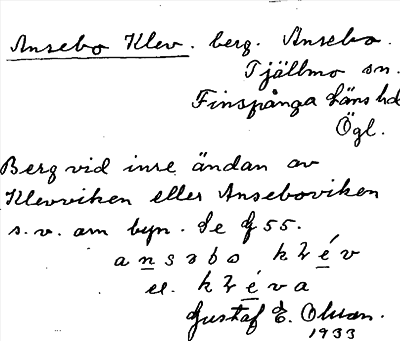 Ansebo Klev. berg. Ansebo.
Tjällmo sn.
Finspånga läns hd
Ögl.
Berg vid inre ändan av
Klevviken eller Anseboviken
s.v. om byn. Se G 55.
el.
Gustaf E. Olsson.
1933